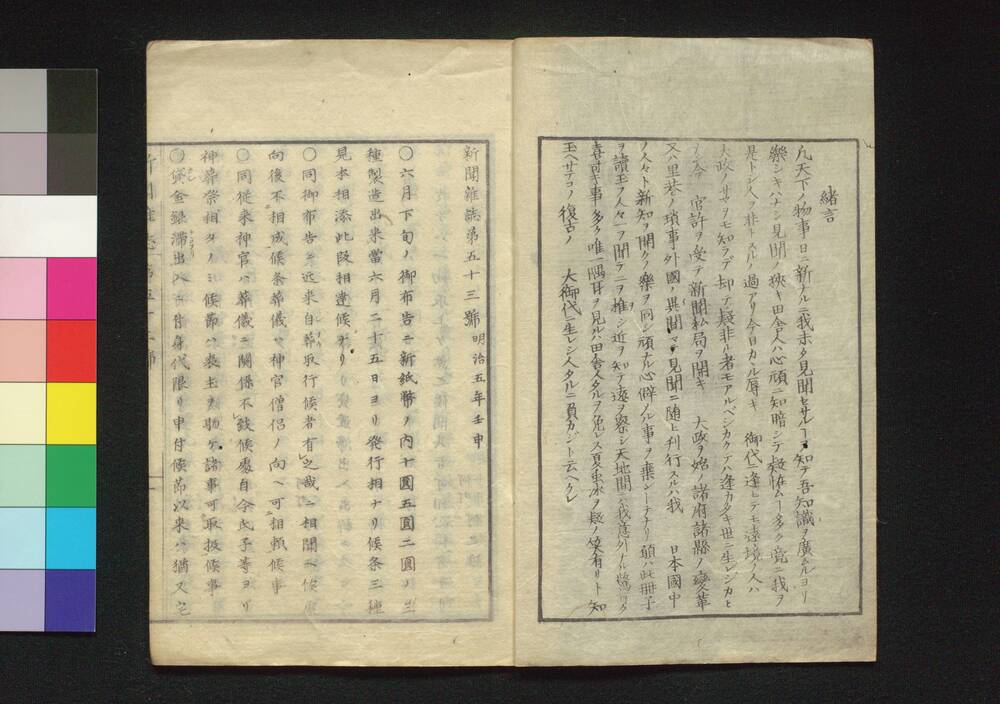 緒言
凡天下ノ物事日ニ新ナルニ我未タ見聞セサルヿヲ知テ吾知識ヲ廣ムルヨリ
樂シキハナシ見聞ノ狹キ田舎人ハ心頑ニ知暗シテ疑怪ムヿ多ク竟ニ我ヲ
是トシ人ヲ非トスルノ過アリ今日カヽル辱キ 御代ニ逢ヒテモ遠境ノ人ハ
大政ノサマヲモ知ラデ却テ疑非ル者モアルベシカクテハ逢カタキ世ニ生レシカヒ
ナシ今 官許ヲ受テ新聞私局ヲ開キ 大政ヲ始メ諸府諸縣ノ變革
又ハ里巷ノ瑣事外國ノ異聞マデ見聞ニ随ヒ刊行スルハ我 日本國中
ノ人々ト新知ヲ開クノ樂ヲ同シ頑ナル心僻メル事ヲ棄シーナリ願ハ此冊子
ヲ讀玉フ人々一ヲ聞テ二ヲ推シ近ヲ知テ遠ヲ察シ天地間ニハ我意外ノ驚ヘク
喜フヘキ事多ク唯一隅耳ヲ見ルハ田舎人タルヲ免レス夏虫氷ヲ疑ノ笑有リト知
玉ヘサテコソ復古ノ 大御代ニ生レシ人タルニ負カジト云ヘケレ
新聞雜誌第五十三號 明治五年壬申
〇六月下旬ノ御布告ニ新紙幣ノ内十圓五圓二圓ノ三
種製造出来當六月二十五日ヨリ發行相ナリ候条三種
見本相添此段相達候事ナリ
〇同御布告ニ近来自葬取行候者有之哉ニ相聞ヘ候處
向後不相成候条葬儀ハ神官僧侶ノ内ヘ可相頼候事
〇同従来神官ハ葬儀ニ關係不致候處自今氏子等ヨリ
神葬祭相タノミ候節ハ喪主ヲ助ケ諸事可取扱候事
〇同貸金銀滞出入ニ付身代限リ申付候節以来ハ猶又宅